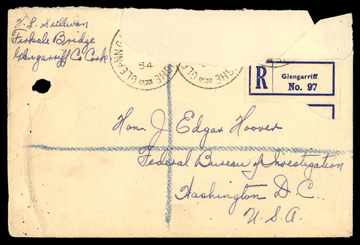 V. L. Sullivan
Bridge
Glengarriff Co Cork
54
R
Glengarriff
No. 97
Hon. J. Edgar Hoover
Federal Bureau of Investigation
Washington D.C.
U.S.A.